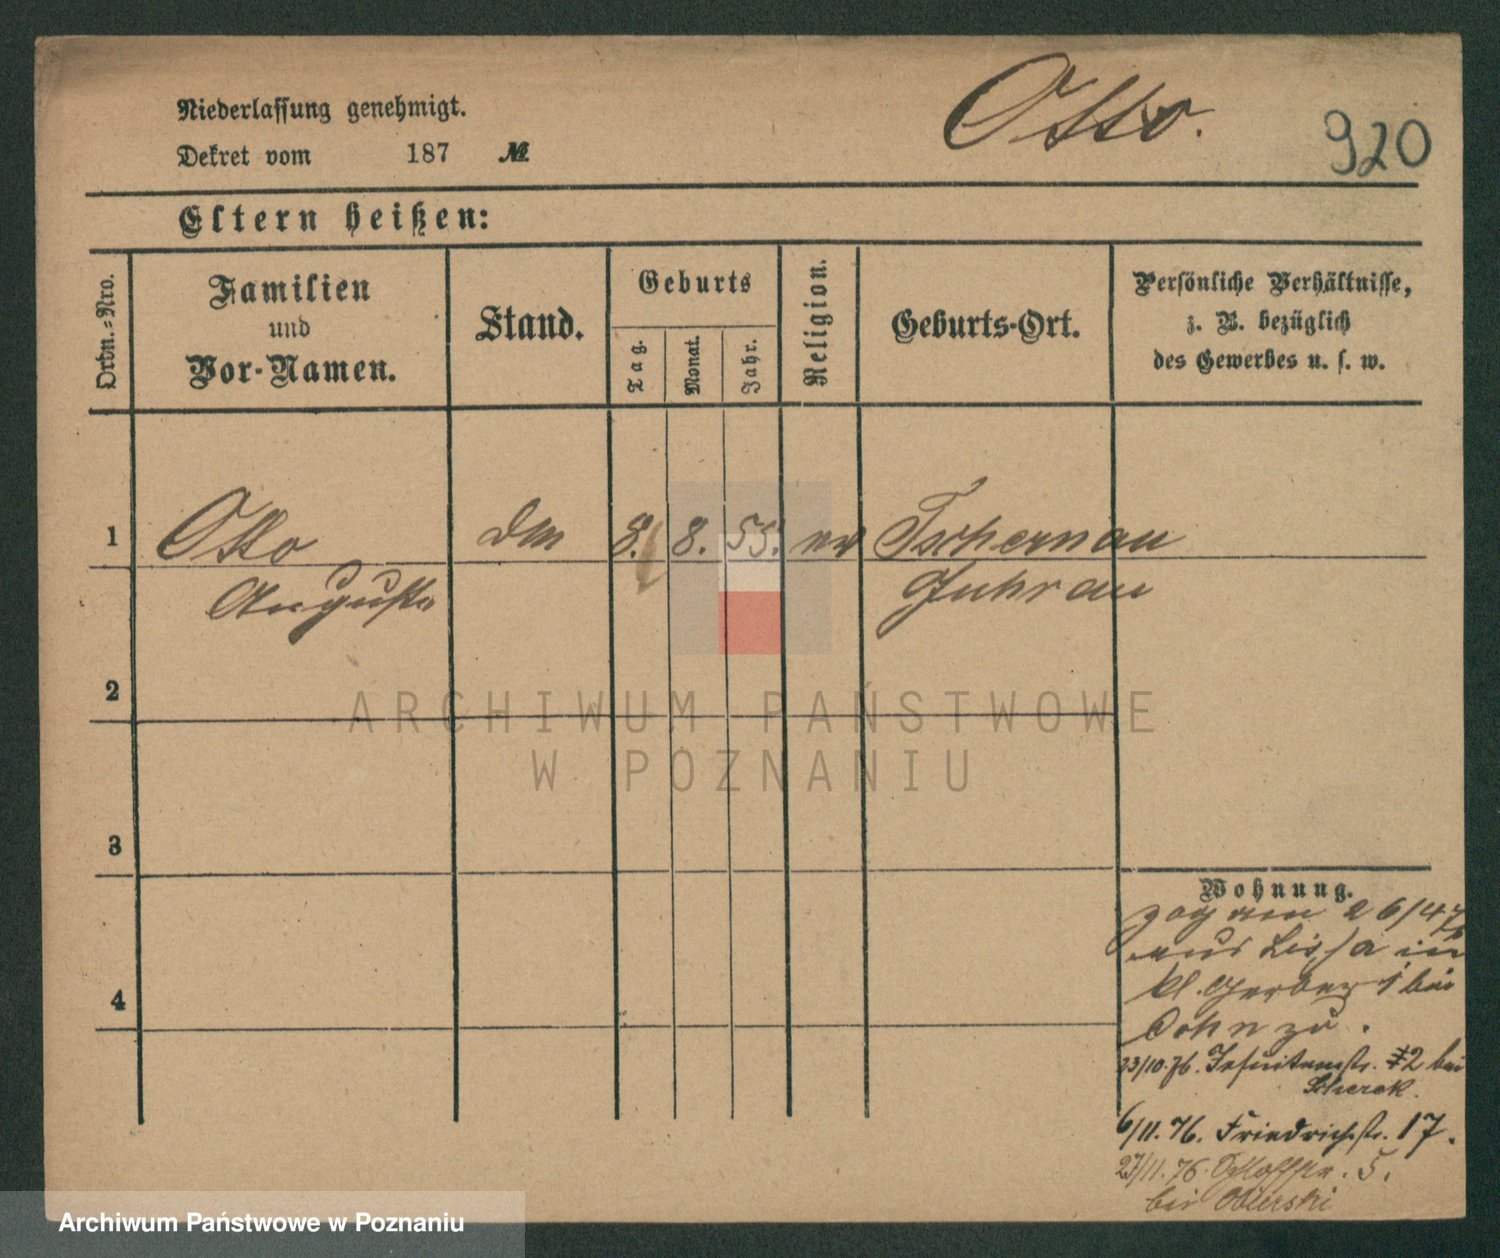 Niederlassung genehmigt.
Otto.
920
Dekret vom 187 №
Eltern heißen:
Ordn.=Nro.
Familien
und
Vor-Namen.
Stand.
Geburts
Tag.
Monat.
Jahr.
Religion.
Geburts-Ort.
Persönliche Verhältnisse,
z. B. bezüglich
des Gewerbes u. s. w.
1 Otto 8. 8. 55. ev Tschernau
Auguste Guhrau
2
ARCHIWUM PAŃSTWOWE
W POZNANIU
3
4
Wohnung.
zog am 26/4 76
aus Lissa in
kl. Gerber 1 bei
Cohn zu.
23/10. 76. Jesuitenstr. 2 bei
Scherek.
6/11. 76. Friedrichstr. 17.
27/11. 76. Schloßstr. 5.
bei
Archiwum Państwowe w Poznaniu